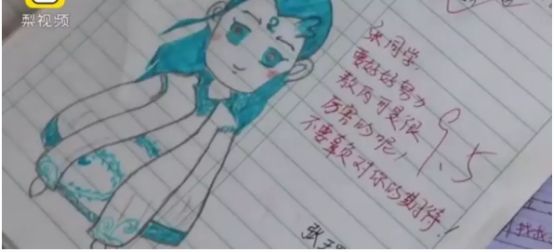 梨视频
张同学,
要好好努力
敖丙可是很
厉害的呢!
不要辜负对你的期待!
9.5